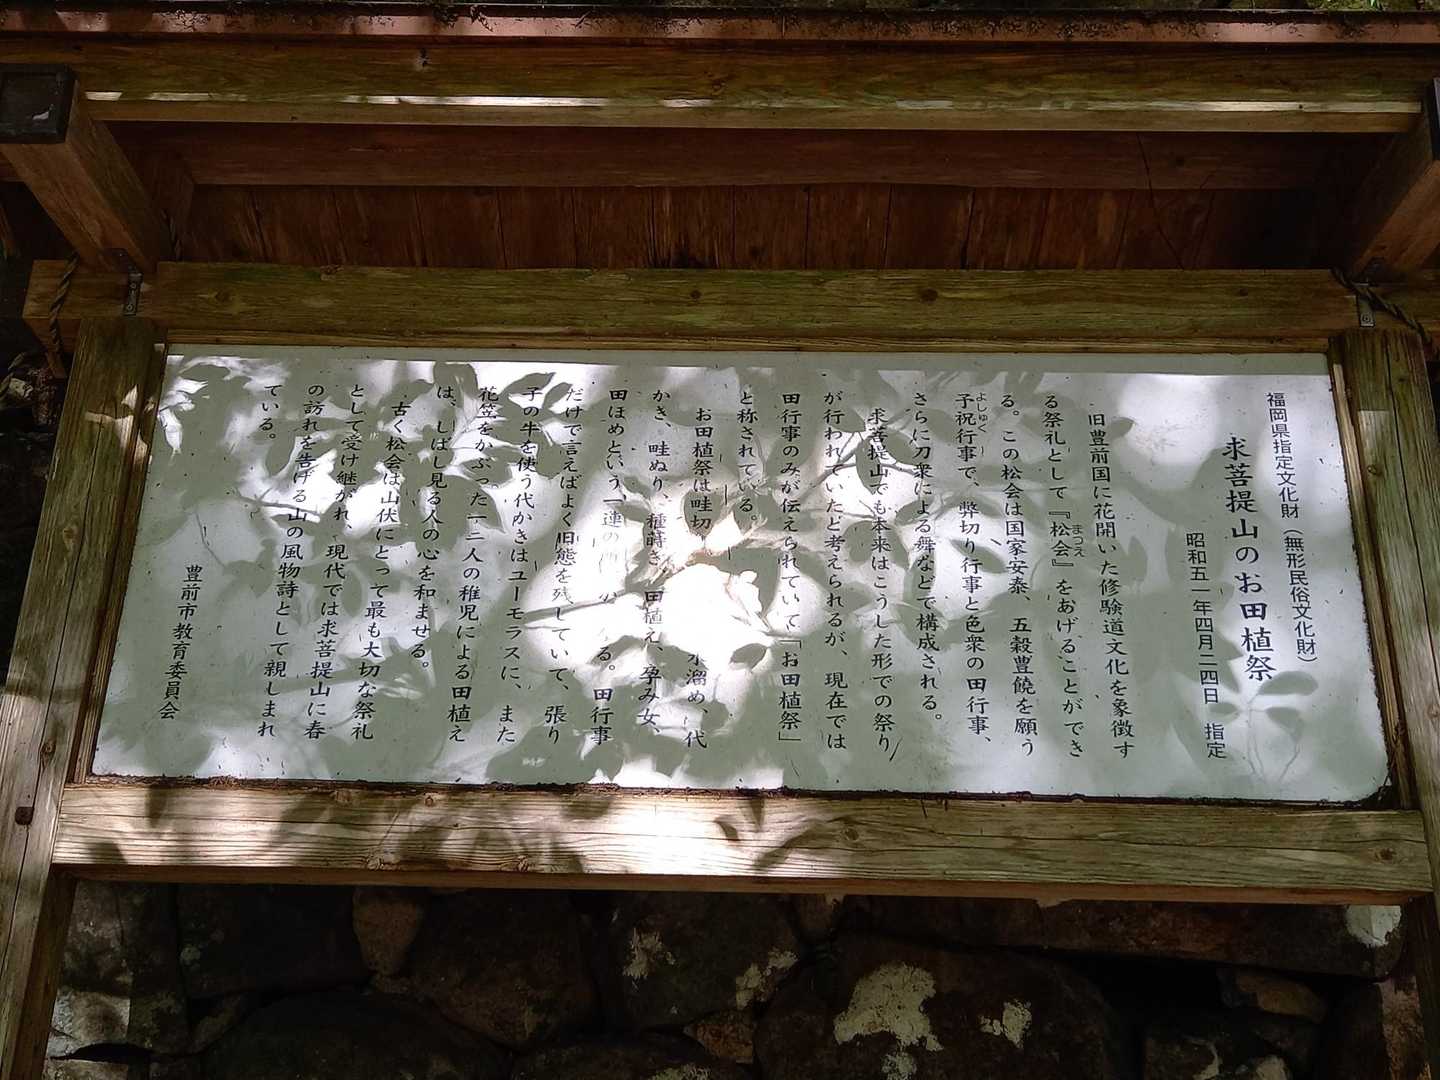 福岡県指定文化財（無形民俗文化財）
求菩提山のお田植祭
昭和五一年四月二四日　指定
旧豊前国に花開いた修験道文化を象徴す
る祭礼として『松会』をあげることができ
まつえ
る。この松会は国家安泰、五穀豊饒を願う
予祝行事で、弊切り行事と色衆の田行事、
よしゅく
さらに刀衆による舞などで構成される。
求菩提山でも本来はこうした形での祭り
が行われていたと考えられるが、現在では
田行事のみが伝えられていて「お田植祭」
と称されている。
お田植祭は畦切　水溜め、代
かき、畦ぬり、種蒔き、田植え、孕み女、
田ほめという、一連の　る。田行事
だけで言えばよく旧態を残していて、張り
子の牛を使う代かきはユーモラスに、また
花笠をかぶった十二人の稚児による田植え
は、しばし見る人の心を和ませる。
古く松会は山伏にとって最も大切な祭礼
として受け継がれ、現代では求菩提山に春
の訪れを告げる山の風物詩として親しまれ
ている。
豊前市教育委員会